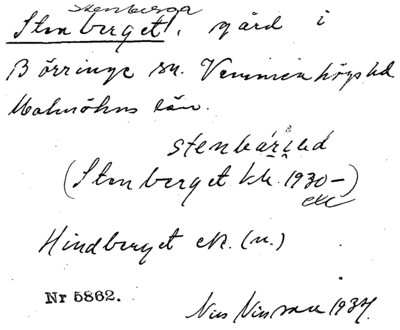 stenberga
Stenberget, gård i
Börringe sn. Vemmenhögs hd
Malmöhus län.
stenbär
(Stenberget kk. 1930–)
Hindberget ek. (n.)
Nr 5862.
Nils Nilsson 1937.